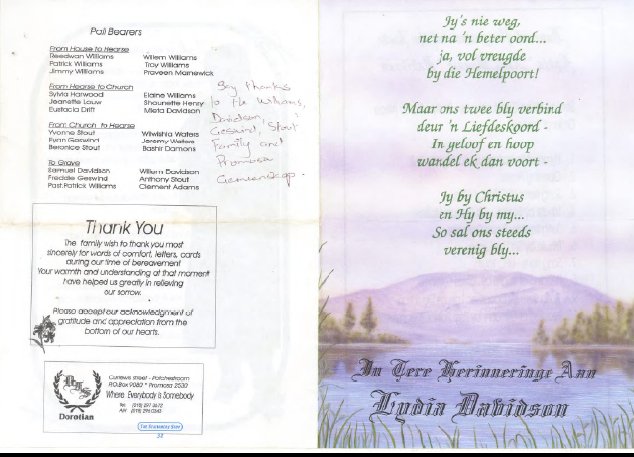 Pall Bearers
From House to Hearse
Reedwan Williams Willem Williams
Patrick Williams Troy Williams
Jimmy Williams Praveen Marnewick
From Hearse to Church
Sylvia Harwood Elaine Williams
Jeanette Louw Shaunette Henry
Eustacia Drift Mieta Davidson
From Church to Hearse
Yvonne Stout Wilwishia Waters
Geswind Jeremy Waters
Beronice Stout Bashir Damons
To Grave
Samuel Davidson Willem Davidson
Freddie Geswind Anthony Stout
Past. Patrick Williams Clement Adams
Say thanks
to the Williams,
Davidson,
Geswind, Stout
Family and
Promosa
Gemeenskap.
Thank You
The family wish to thank you most
sincerely for words of comfort, letters, cards
during our time of bereavement
Your warmth and understanding at that moment
have helped us greatly in relieving
our sorrow.
Please accept our acknowledgment of
gratitude and appreciation from the
bottom of our hearts.
Dorotian
Curlews street - Potchefstroom
P.O.Box 9080 * Promosa 2530
Where Everybody is Somebody
Tel: (018) 297-3572
32
Jy's nie weg,
net na 'n beter oord...
ja, vol vreugde
by die Hemelpoort!
Maar ons twee bly verbind
deur 'n Liefdeskoord -
In geloof en hoop
wandel ek dan voort -
Jy by Christus
en Hy by my...
So sal ons steeds
verenig bly...
In Tere Herinneringe Aan
Lydia Davidson